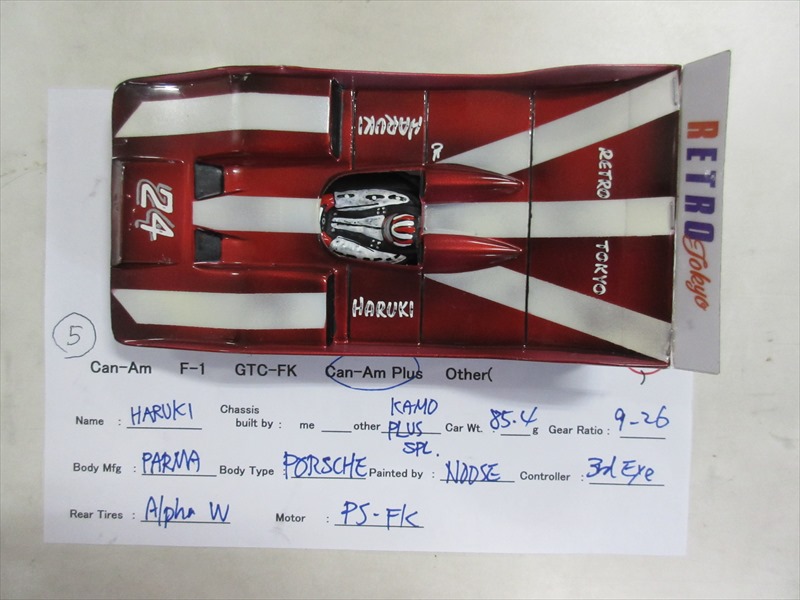 HARUKI
R
24
RETRO TOKYO
HARUKI
RETRO
Tokyo
5
Can-Am F-1 GTC-FK Can-Am Plus Other( )
Name : HARUKI Chassis built by : me ____ other KAMO PLUS SPL. Car Wt. : 85.4 g Gear Ratio : 9-26
Body Mfg : PARMA Body Type : PORSCHE Painted by : NOOSE Controller : 3rd Eye
Rear Tires : Alpha W Motor : PS-FK